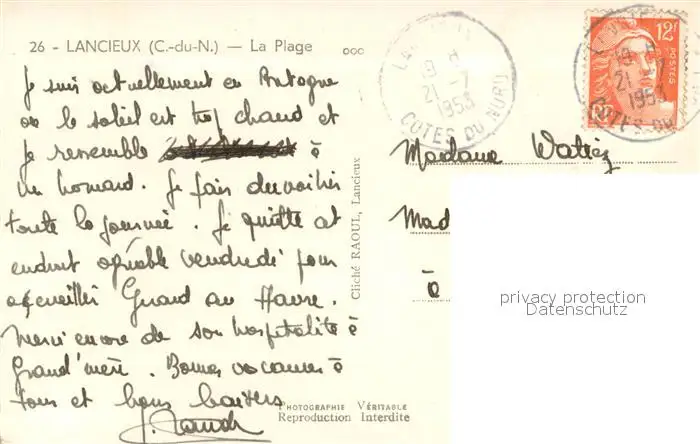 26 - LANCIEUX (C.-du-N.) — La Plage
Je suis actuellement en Bretagne
ou le soleil est trop chaud et
je ressemble à
un homard. Je fais du voilier
toute la journée. Je quitte cet
endroit agréable vendredi pour
accueillir Gunard au Havre.
Merci encore de son hospitalité à
Grand'mère. Bonnes vacances à
tous et bons baisers
Cliché RAOUL, Lancieux
PHOTOGRAPHIE VÉRITABLE
Reproduction Interdite
19 H
21-7
1953
COTES DU NORD
12F
POSTES
RF
19 H
21-7
1953
COTES DU
Madame Watiez
Mad
à
privacy protection
Datenschutz